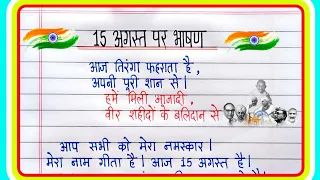 15 अगस्त पर भाषण
आज तिरंगा फहराता है,
अपनी पूरी शान से।
हमें मिली आज़ादी,
वीर शहीदों के बलिदान से
आप सभी को मेरा नमस्कार।
मेरा नाम गीता है। आज 15 अगस्त है।